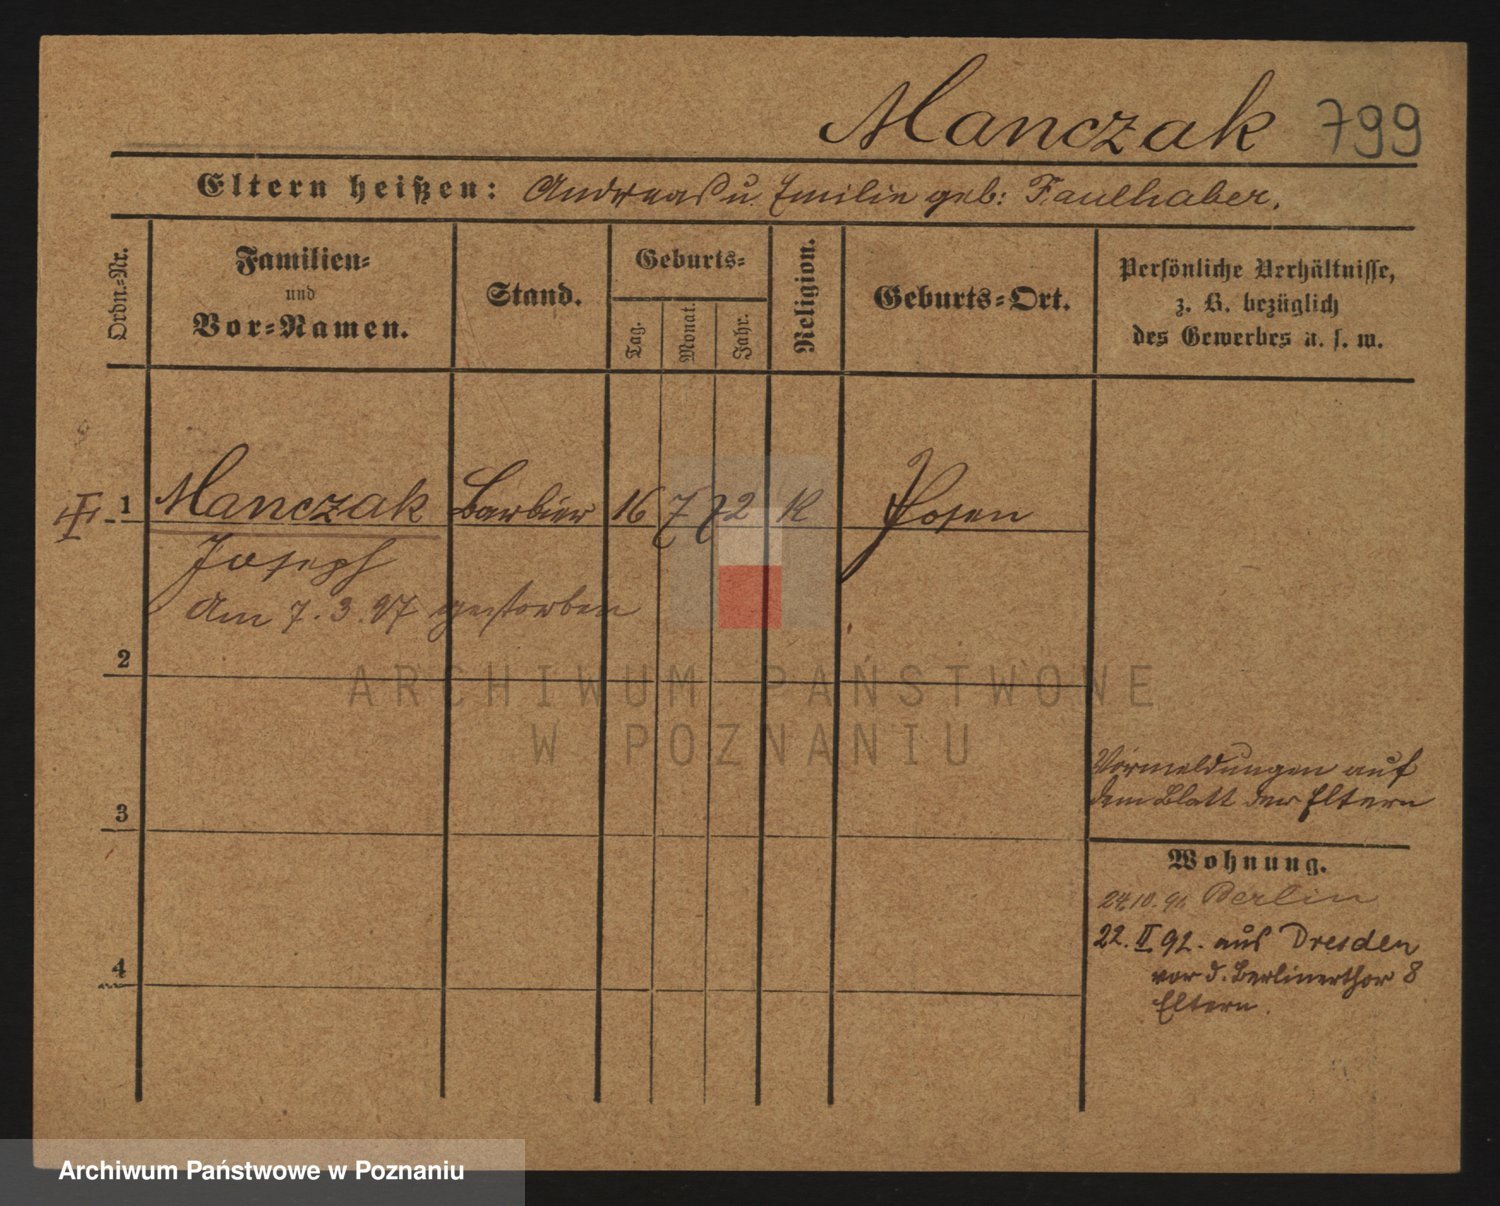 Manczak 799
Eltern heißen: Andreas u. Emilie geb: Faulhaber.
Ordn.-Nr.
Familien-
und
Vor-Namen.
Stand.
Geburts-
Tag.
Monat.
Jahr.
Religion.
Geburts-Ort.
Persönliche Verhältnisse,
z. B. bezüglich
des Gewerbes u. s. w.
1 Manczak Barbier 16 7 72 K Posen
Joseph
Am 7. 3. 97 gestorben
2
3
4
Vormeldungen auf
dem Blatt der Eltern
Wohnung.
24/10. 91 Berlin
22. II 92. aus Dresden
vor d. Berlinerthor 8
Eltern.
ARCHIWUM PAŃSTWOWE
W POZNANIU
Archiwum Państwowe w Poznaniu